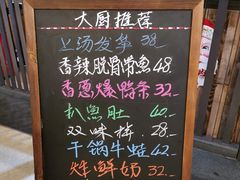 大厨推荐
上汤发华 38.
香辣脱骨带鱼 48.
香葱爆鸭条 32
扒鱼肚 40.
双味拼. 28.
干锅牛蛙 42.
炸鲜奶 32.